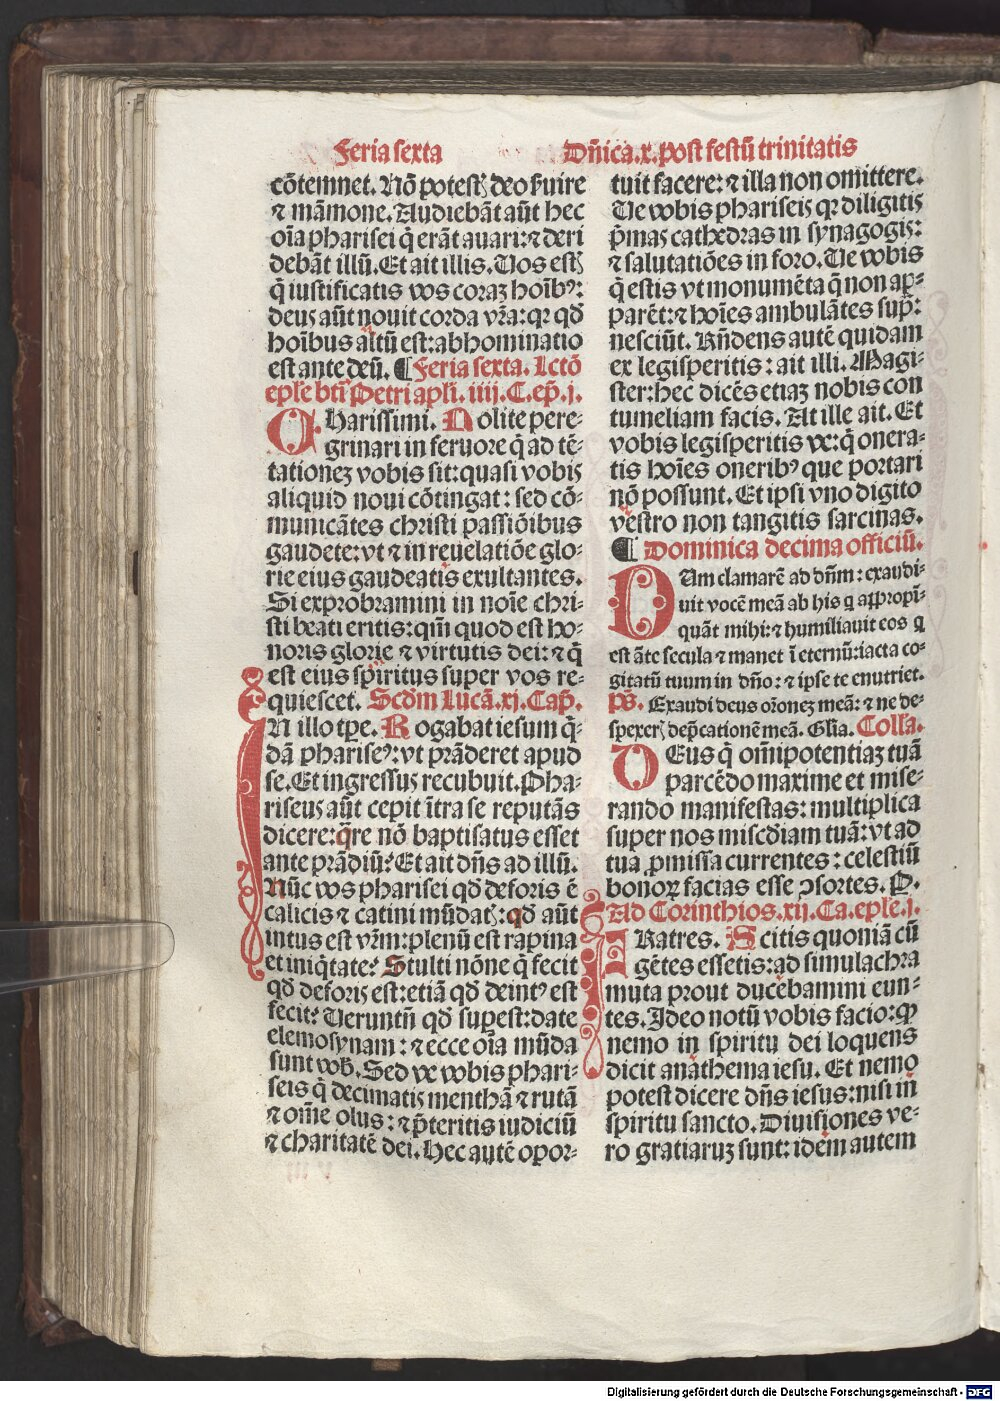 Feria sexta
Dñica.x.post festũ trinitatis
cõtemnet. Nõ potestꝭ deo ẜuire
⁊ mãmone. Audiebãt aũt hec
oĩa pharisei q̃ erãt auari:⁊ deri
debãt illũ. Et ait illis. Uos estꝭ
q̃ iustificatis vos coraꝫ hoĩbꝰ:
deus aũt nouit corda vr̃a: qꝛ qđ
hoĩbus altũ est: abhominatio
est ante deũ. ¶ Feria sexta. Lctõ
epl̃e bti Petri apl̃i. iiij. C. ep̃. j.
CHarissimi. Nolite pere-
grinari in feruore q̃ ad tẽ-
tationeꝫ vobis fit: quasi vobis
aliquid noui cõtingat: sed cõ-
municãtes christi passiõibus
gaudete: vt ⁊ in reuelatiõe glo-
rie eius gaudeatis exultantes.
Si exprobramini in noĩe chri-
sti beati eritis: qm̃ quod est ho-
noris glorie ⁊ virtutis dei: ⁊ q̃
est eius spiritus super vos re-
quiescet. Scđm Lucã. xj. Cap̃.
IN illo tp̃e. Rogabat iesum q̃-
dã phariseꝰ: vt prãderet apud
se. Et ingressus recubuit. Pha-
riseus aũt cepit ĩtra se reputãs
dicere: q̃re nõ baptisatus esset
ante prãdiũ? Et ait dñs ad illũ.
Nũc vos pharisei qđ deforis ẽ
calicis ⁊ catini mũdatꝭ: qđ aũt
intus est vr̃m: plenũ est rapina
et iniq̃tate? Stulti nõne q̃ fecit
qđ deforis est: etiã qđ deintꝰ est
fecit? Ueruntñ qđ suꝑest: date
elemosynam: ⁊ ecce oĩa mũda
sunt vob̃. Sed ve vobis phari-
seis q̃ decimatis menthã ⁊ rutã
⁊ om̃e olus: ⁊ p̃teritis iudiciũ
⁊ charitatẽ dei. Hec autẽ opor-
tuit facere: ⁊ illa non omittere.
Ue vobis phariseis qꝛ diligitis
p̃mas cathedras in synagogis:
⁊ salutatiões in foro. Ue vobis
q̃ estis vt monumẽta q̃ non ap-
parẽt: ⁊ hoĩes ambulãtes sup̃:
nesciũt. Rñdens autẽ quidam
ex legisperitis: ait illi. Magi-
ster: hec dicẽs etiaꝫ nobis con
tumeliam facis. At ille ait. Et
vobis legisperitis ve: q̃ onera-
tis hoĩes oneribꝰ que portari
nõ possunt. Et ipsi vno digito
vestro non tangitis sarcinas.
¶ Dominica decima officiũ.
DUm clamarẽ ad dñm: exaudi-
uit vocẽ meã ab his q appropĩ-
quãt mihi: ⁊ humiliauit eos q
est ãte secula ⁊ manet ĩ eternũ: iacta co-
gitatũ tuum in dño: ⁊ ipse te enutriet.
pš. Exaudi deus oĩoneꝫ meã: ⁊ ne de-
spexerꝭ dep̃cationẽ meã. Glĩa. Coll'a.
DEus q̃ om̃ipotentiaꝫ tuã
parcẽdo maxime et mise-
rando manifestas: multiplica
super nos misc̃diam tuã: vt ad
tua ꝓmissa currentes: celestiũ
bonoꝝ facias esse ↄsortes. P.
Ad Corinthios. xij. Ca. epl̃e. j.
FRatres. Scitis quoniã cũ
gẽtes essetis: ad simulachra
muta prout ducebamini eun-
tes. Ideo notũ vobis facio: ꝙ
nemo in spiritu dei loquens
dicit anathema iesu. Et nemo
potest dicere dñs iesus: nisi in
spiritu sancto. Diuisiones ve-
ro gratiaruꝫ sunt: idem autem
Digitalisierung gefördert durch die Deutsche Forschungsgemeinschaft - DFG